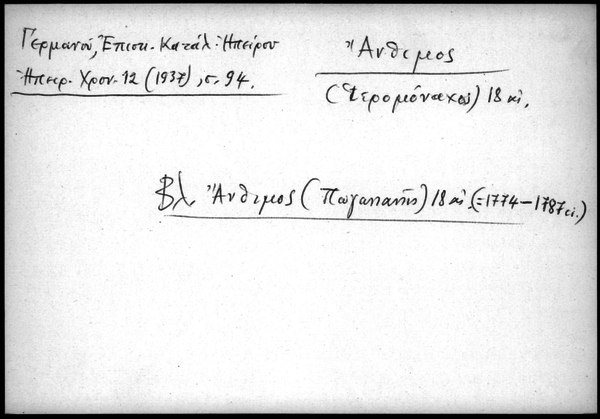 Γερμανοῦ, Ἐπισκ. Κατάλ. Ἠπείρου
Ἠπειρ. Χρον. 12 (1937), σ. 94.
Ἄνθιμος
(Ἱερομόναχος) 18 αἰ.
Βλ. Ἄνθιμος (Πωγωνιανῆς) 18 αἰ. (=1774–1787 εἰ.)